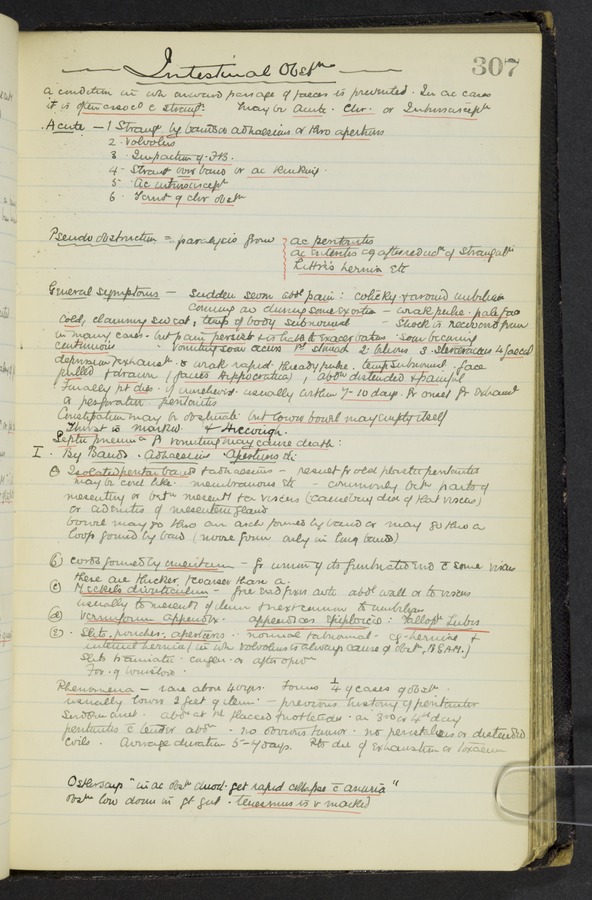 Intestinal Obstn
307
a condition in wh onward passage of faeces is prevented. In ac cases
it is often assocd c strangn. may be Acute. Chr. or Intussuscepn
Acute — 1 Strangn by bands or adhaesions or thro apertures
2. Volvulus
3. Impaction of F.B.
4. Strang over band or ac kinking.
5. ac intussuscepn
6. Termn of chr obstn
Pseudo obstruction = paralysis from ac peritonitis
ac enteritis eg after reductn of strangulatn
Littré's hernia etc
General symptoms — sudden severe abdl pain: colicky & around umbilicus
coming on during some exertion — weak pulse. pale face
cold, clammy sweat, temp of body subnormal — Shock is recovered from
in many cases. but pain persists & is liable to exacerbations. Soon becoming
continuous. Vomiting soon occurs 1st stomach 2 bilious 3 stercoraceous 4 faecal
depression & exhaustn & weak rapid thready pulse. temp subnormal, face
pulled & drawn (facies Hippocratica), abdn distended & painful
Finally pt dies. if unrelieved. usually within 7-10 days fr onset fr exhaustn
or perforative peritonitis
Constipation may be obstinate but lower bowel may empty itself
Thirst is marked & Hiccough.
Septic pneumia fr vomiting may cause death:
I. By Bands. Adhaesions Apertures etc:
(a) Isolated peritonl bands & adhaesions — result fr old plastic peritonitis
may be cord like. membranous etc — commonly betn parts of
mesentery or betn mesentery & a viscus (causing disn of that viscus)
or adenitis of mesenteric gland
bowel may go thro an arch formed by band or may go thro a
loop formed by band (noose form only in long bands)
(b) cords formed by omentum — fr union of its fimbriated end c some viscus
these are thicker, & coarser than a.
(c) Meckels diverticulum — free end fixes onto abdl wall or to viscus
usually to mesentery of ileum & next common to umbilicus
(d) Vermiform appendix. appendices epiploicae: Fallopn tubes
(e). Slits, pouches, apertures. normal & abnormal. eg herniae &
internal hernia (in wh volvulus is always cause of obstn, B.G.A.M.)
slits traumatic - congen - or after opern
For. of Winslow.
Phenomena — rare above 40 yrs. Forms 1/4 of cases of obstn.
usually lower 2 feet of ileum — previous history of peritonitis
Sudden onset. abdn at 1st flaccid & not tender. on 3rd or 4th day
peritonitis c tender abdn. no obvious tumor. no peristalsis or distended
coils. Average duration 5-7 days. Pts die of exhaustion or toxaemia
Osler says "in ac obstn duod. get rapid collapse c anuria"
obstn low down in gt gut. tenesmus is v marked